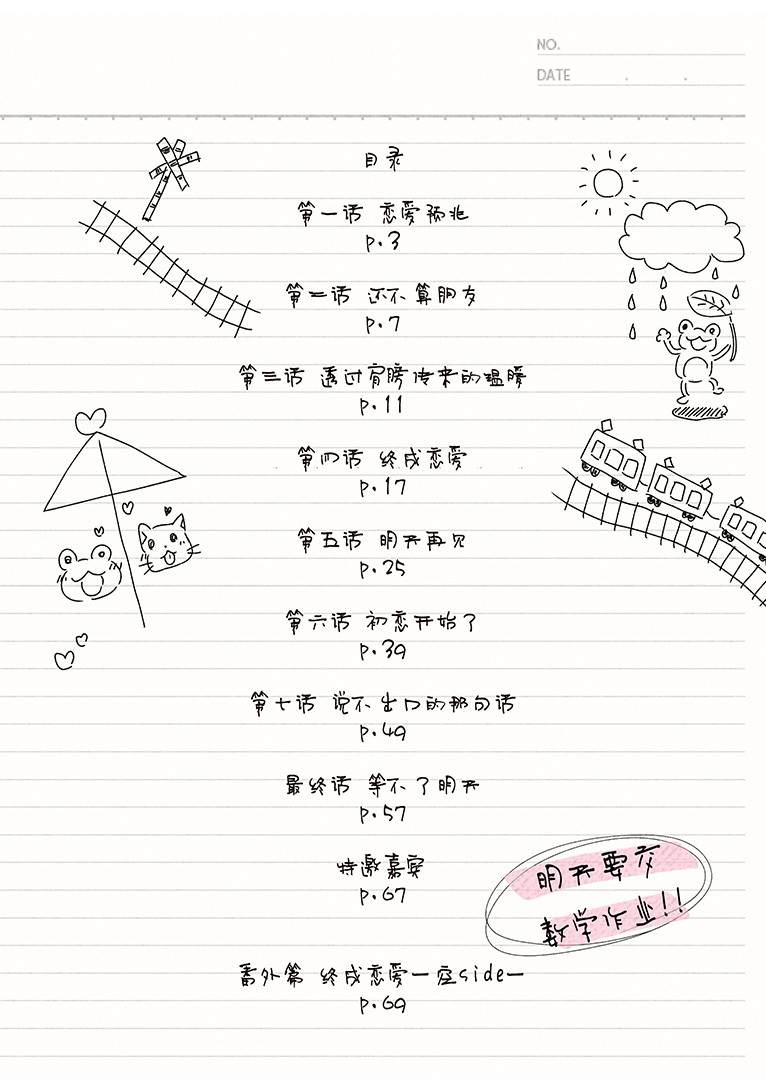 NO.
DATE
目录
第一话 恋爱预兆
p.3
第二话 还不算朋友
p.7
第三话 透过肩膀传来的温暖
p.11
第四话 终成恋爱
p.17
第五话 明天再见
p.25
第六话 初恋开始了
p.39
第七话 说不出口的那句话
p.49
最终话 等不了明天
p.57
特邀嘉宾
p.67
明天要交
数学作业!!
番外篇 终成恋爱一 side一
p.69